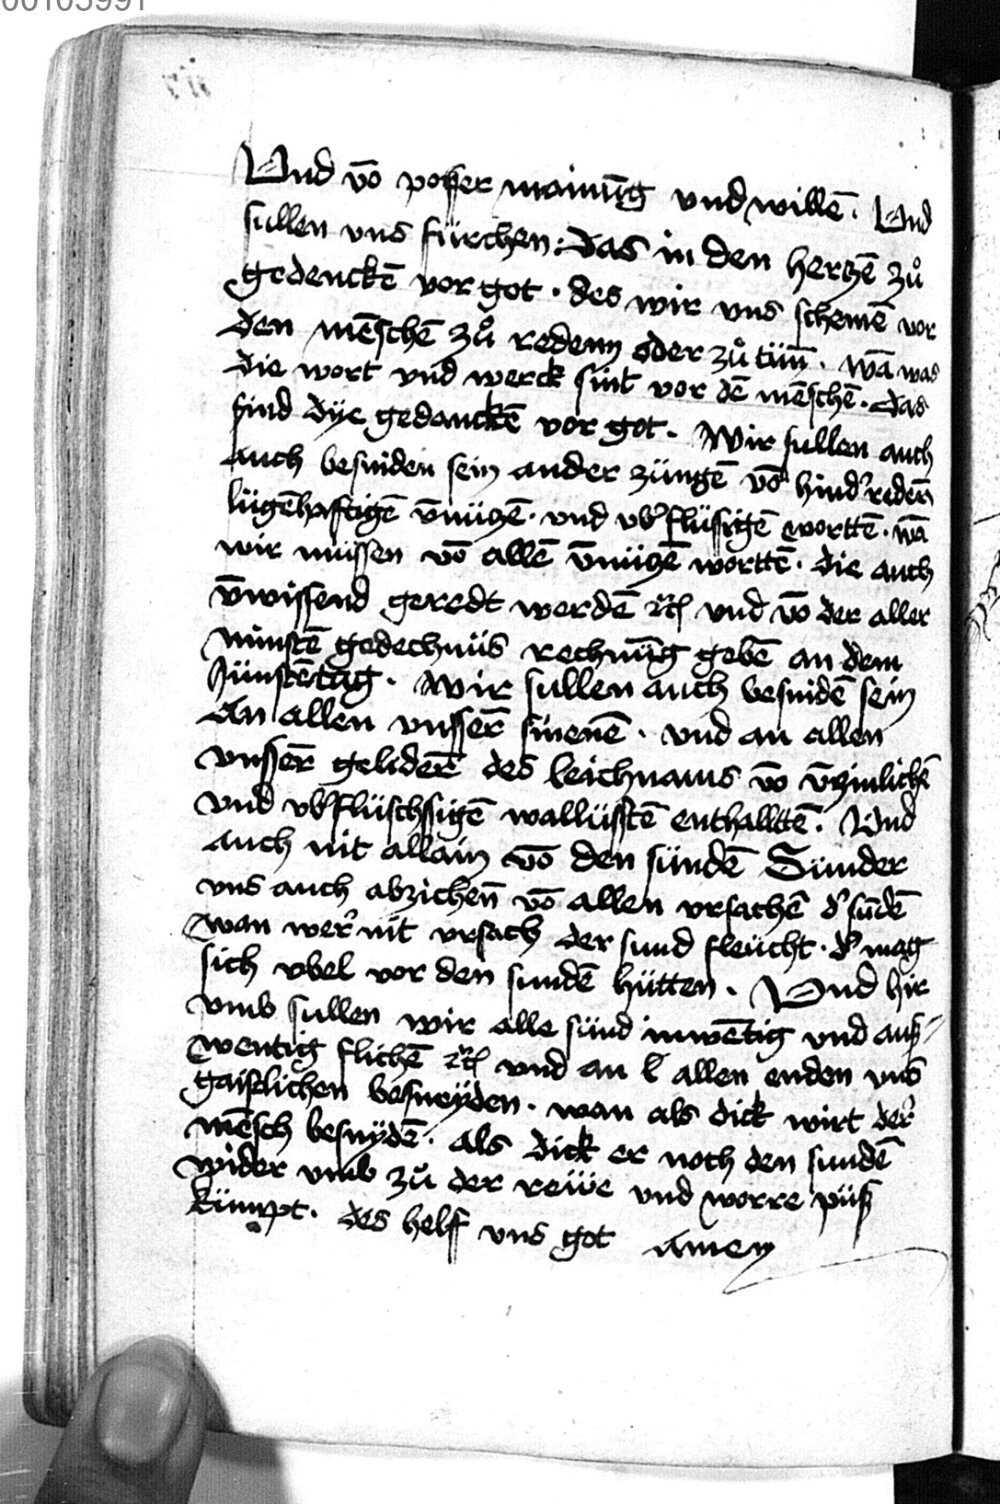 00103991
Und võ posser mainũg und willẽ. Und
sullen uns fürchen: das in den hertzẽ zů
gedenckẽ vor got. des wir uns schemẽ vor
den mẽschẽ zů redenn oder zů tün̄. wã was
die wort und werck sint vor dẽ mẽschẽ. das
sind dÿe gedanckẽ vor got. Wir sullen auch
auch besniden sein ander züngẽ võ hind'redeñ
lügẽhafftigẽ ũnützẽ. und ub'flüssigẽ wortẽ. wã
wir müssen võ allẽ ũnützẽ wortẽ. die auch
ũwissend geredt werdẽ ꝛc̃ und võ der aller
minstẽ gedechnüs rechnũg gebẽ an dem
Jünstẽtag. Wir sullen auch besnidẽ sein
An allen unsser̃ sinenẽ. und an allen
unsser̃ gelider̃ des leichnams võ ũzimlichẽ
und ub'flüschsigẽ wallüsstẽ enthalltẽ. Und
auch nit allain võ den sündẽ Sunder
uns auch abzichen̄ võ allen ursachẽ d' sũdẽ
wan wer' nit ursach der sund fleücht. d' mag
sich ubel vor den sundẽ hütten. Und hir
umb sullen wir alle sünd inwẽtig und aus=
wentig flichẽ ꝛc̃ und an l allen enden uns
gaistlichen besneÿden. wan als dick wirt der'
mẽsch besnÿdẽ. als dick er noch den sundẽ
wider umb zů der reüe und worre püss
kümpt. des helff uns got amen